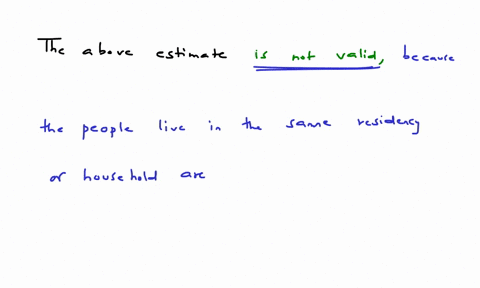 The above estimate is not valid, because
the people live in the same residency
or household are